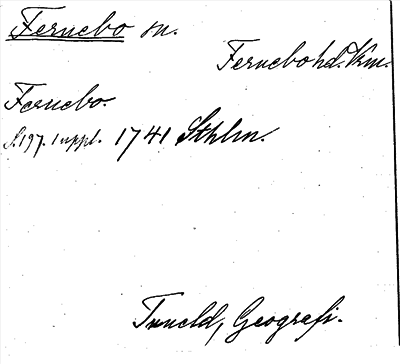 Fernebo sn.
Fernebo hd. Vrm.
Fernebo.
S.197. 1 uppl. 1741 Sthlm.
Tuneld, Geografi.